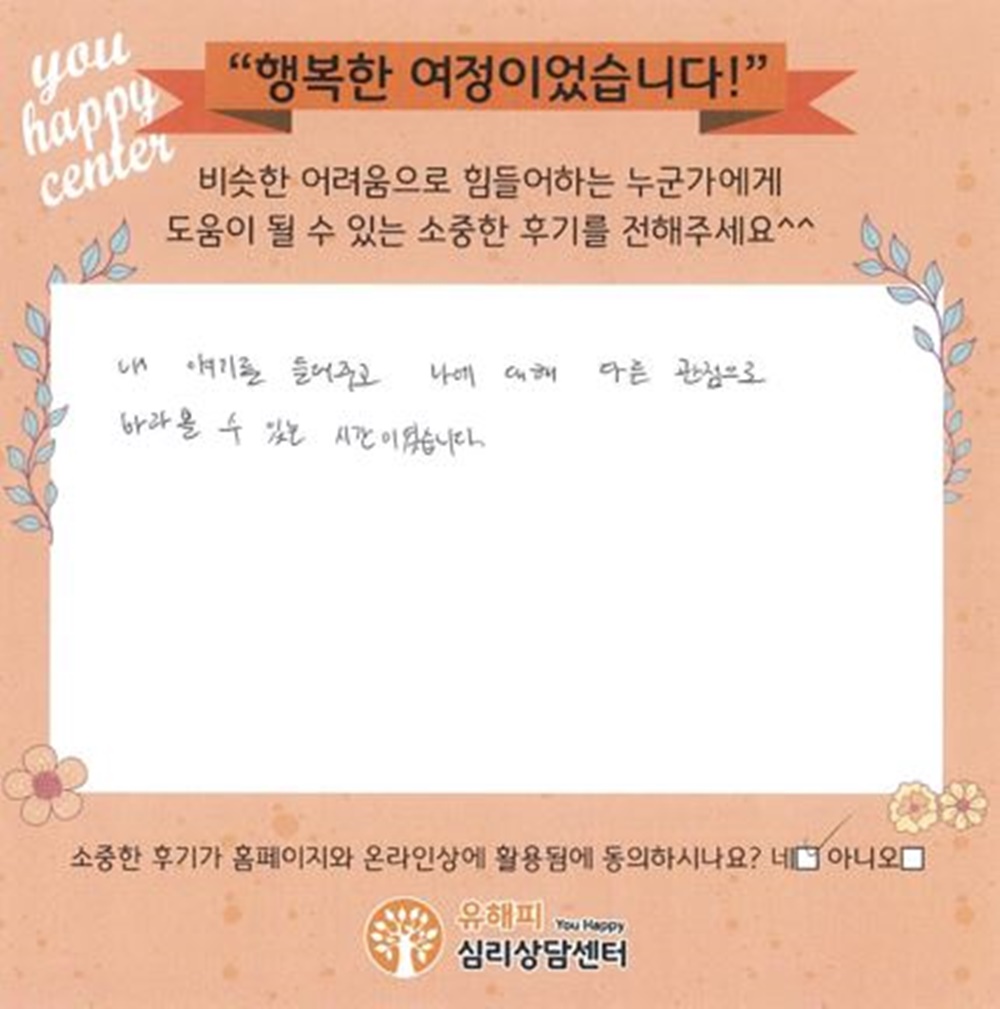 you
happy
center
“행복한 여정이었습니다!”
비슷한 어려움으로 힘들어하는 누군가에게
도움이 될 수 있는 소중한 후기를 전해주세요^^
내 얘기를 들어주고 나에 대해 다른 관점으로
바라볼 수 있는 시간이였습니다.
소중한 후기가 홈페이지와 온라인상에 활용됨에 동의하시나요? 네☑ 아니오□
유해피 You Happy
심리상담센터